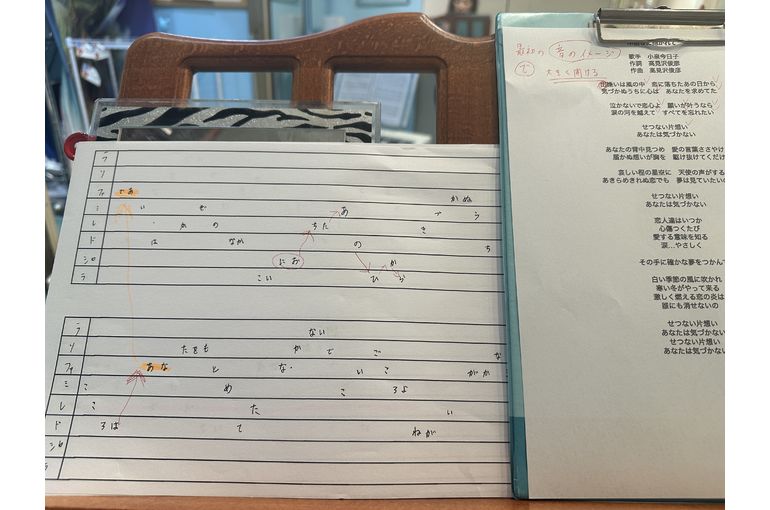 ラ
ソ
ファ であ かぬ
ミ い ぜ あ づ う
レ ・ かの ちた き
ド は なか の ち
シ♭ にお か
ラ こい ひ ら
ラ ない
ソ たをも かで ご な
ファ あな と な・ いこ がか
ミ こ め こ ろよ
レ こ た い
ド ろは て ねが
シ♭
ラ
最初の 音のイメージ
で 大きく開ける
歌手 小泉今日子
作詞 高見沢俊彦
作曲 高見沢俊彦
出逢いは風の中 恋に落ちたあの日から
気づかぬうちに心は あなたを求めてた
泣かないで恋心よ 願いが叶うなら
涙の河を越えて すべてを忘れたい
せつない片想い
あなたは気づかない
あなたの背中見つめ 愛の言葉ささやけ
届かぬ想いが胸を 駆け抜けてくだけ
哀しい程の星空に 天使の声がする
あきらめきれぬ恋でも 夢は見ていたいの
せつない片想い
あなたは気づかない
恋人達はいつか
心傷つくたび
愛する意味を知る
涙…やさしく
その手に確かな夢をつかんで
白い季節の風に吹かれ
寒い冬がやって来る
激しく燃える恋の炎は
誰にも消せないの
せつない片想い
あなたは気づかない
せつない片想い
あなたは気づかない